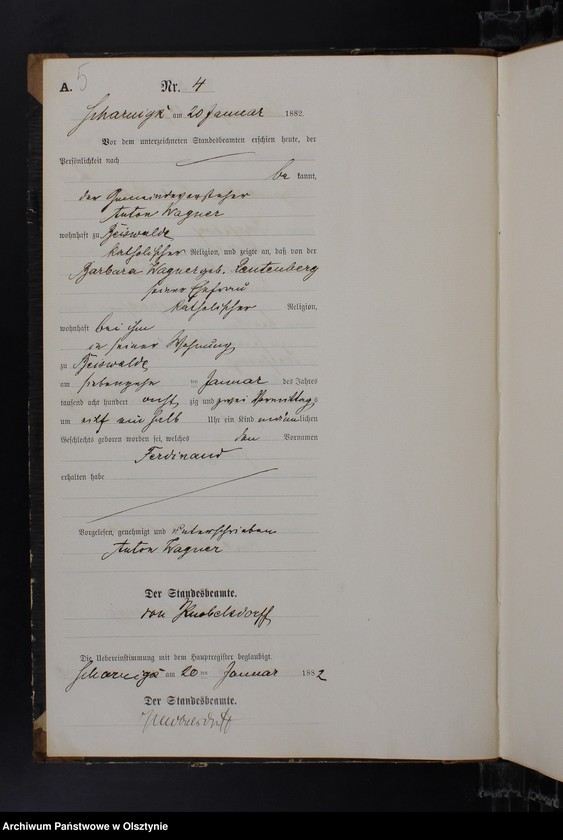 A. 5 Nr. 4
Scharnigk am 20 Januar 1882.
Vor dem unterzeichneten Standesbeamten erschien heute, der
Persönlichkeit nach
be kannt,
der Gemeindevorsteher
Anton Wagner
wohnhaft zu Beiswalde
katholischer Religion, und zeigte an, daß von der
Barbara Wagner geb. Lautenberg
seiner Ehefrau
katholischer Religion,
wohnhaft bei ihm
in seiner Wohnung
zu Beiswalde
am siebenzehn ten Januar des Jahres
tausend acht hundert acht zig und zwei Vormittags
um elf ein halb Uhr ein Kind männlichen
Geschlechts geboren worden sei, welches den Vornamen
Ferdinand
erhalten habe
Vorgelesen, genehmigt und unterschrieben
Anton Wagner
Der Standesbeamte.
von Knobelsdorff
Die Uebereinstimmung mit dem Hauptregister beglaubigt.
Scharnigk am 20 ten Januar 1882
Der Standesbeamte.
Knobelsdorff
Archiwum Państwowe w Olsztynie